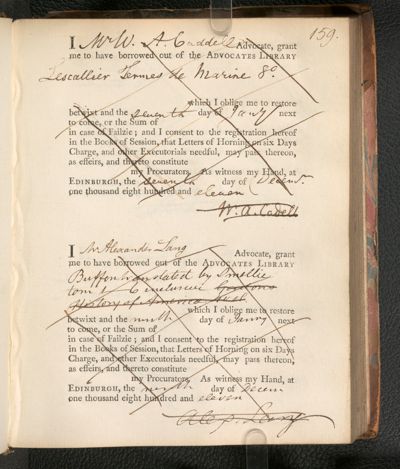 159.
I Mr W. A. Caddell Advocate, grant
me to have borrowed out of the ADVOCATES LIBRARY
Lescallier Termes de Marine 8o.
which I oblige me to restore
betwixt and the seventh day of Jany next
to come, or the Sum of
in case of Failzie; and I consent to the registration hereof
in the Books of Session, that Letters of Horning on six Days
Charge, and other Executorials needful, may pass thereon,
as effeirs, and thereto constitute
my Procurators. As witness my Hand, at
EDINBURGH, the seventh day of Decemr.
one thousand eight hundred and eleven
W. A. Cadell
I Mr Alexander Lang Advocate, grant
me to have borrowed out of the ADVOCATES LIBRARY
Buffon translated by Smellie
tom 1
History of America
which I oblige me to restore
betwixt and the ninth day of Janry next
to come, or the Sum of
in case of Failzie; and I consent to the registration hereof
in the Books of Session, that Letters of Horning on six Days
Charge, and other Executorials needful, may pass thereon,
as effeirs, and thereto constitute
my Procurators. As witness my Hand, at
EDINBURGH, the ninth day of Decem
one thousand eight hundred and eleven
Alexr. Lang